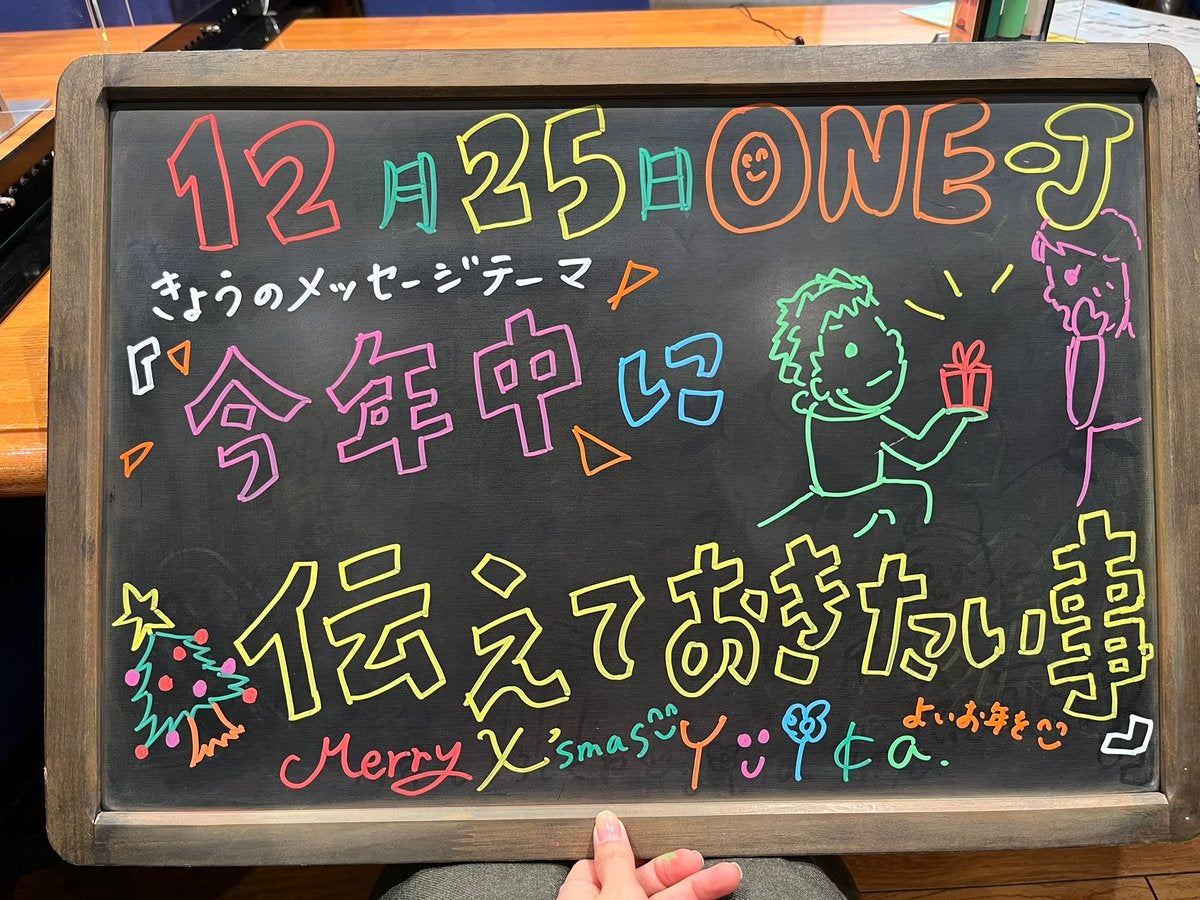 12月25日ONE-J
きょうのメッセージテーマ
『今年中に
伝えておきたい事』
Merry X'smas
よいお年を